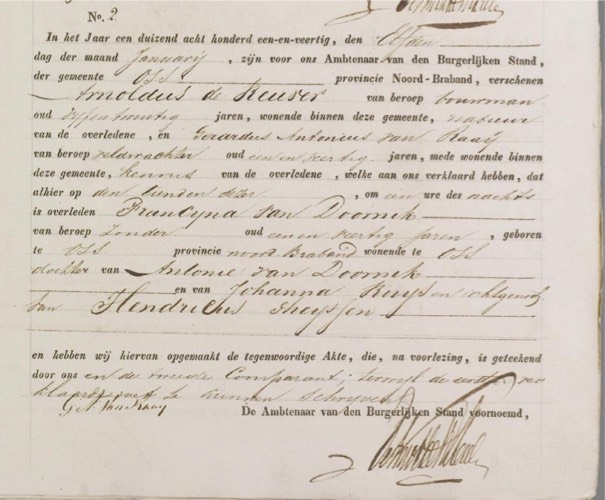 No. 2
In het Jaar een duizend acht honderd een-en-veertig, den Elfden
dag der maand Januarij, zijn voor ons Ambtenaar van den Burgerlijken Stand,
der gemeente Oss provincie Noord-Braband, verschenen
Arnoldus de Reuver van beroep bouwman
oud vyfentwintig jaren, wonende binnen deze gemeente, nabuur
van de overledene, en Gerardus Antonius van Raaij
van beroep veldwachter oud eenen veertig jaren, mede wonende binnen
deze gemeente, kennis van de overledene, welke aan ons verklaard hebben, dat
alhier op den tienden dezer, om een ure des nachts
is overleden Francyna van Doornik
van beroep zonder oud eenen veertig jaren, geboren
te Oss provincie noord Braband wonende te Oss
dochter van Antonie van Doornik
en van Johanna Kuysen echtgenoote
van Hendricus
en hebben wij hiervan opgemaakt de tegenwoordige Akte, die, na voorlezing, is geteekend
door ons en de tweede Comparant; terwyl de eerste ver
klaarde niet te kunnen schryven
G A van Raaij De Ambtenaar van den Burgerlijken Stand voornoemd,